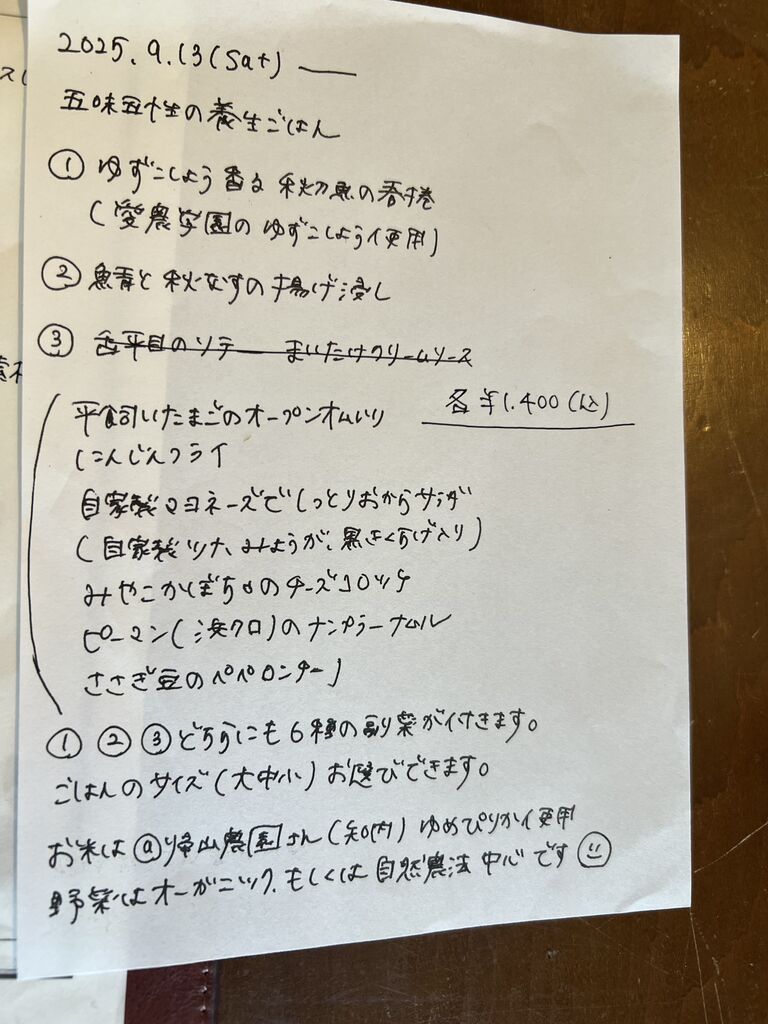 2025.9.13(Sat)
五味五性の養生ごはん
① ゆずこしょう香る 秋切魚の香捲
(愛農学園の ゆずこしょう使用)
② 鯖と秋なすの揚げ浸し
③ 舌平目のソテー まいたけクリームソース
平飼いたまごのオープンオムレツ 各¥1.400(込)
にんじんフライ
自家製マヨネーズでしっとりおからサラダ
(自家製ツナ、みょうが、黒きくらげ入り)
みやこかぼちゃのチーズコロッケ
ピーマン(浜クロ)のナンプラーナムル
ささぎ豆のペペロンチーノ
① ② ③ どちらにも6種の副菜が付きます。
ごはんのサイズ(大中小)お選びできます。
お米は ⓐ帰山農園さん(知内)ゆめぴりか使用
野菜はオーガニック、もしくは自然農法中心です